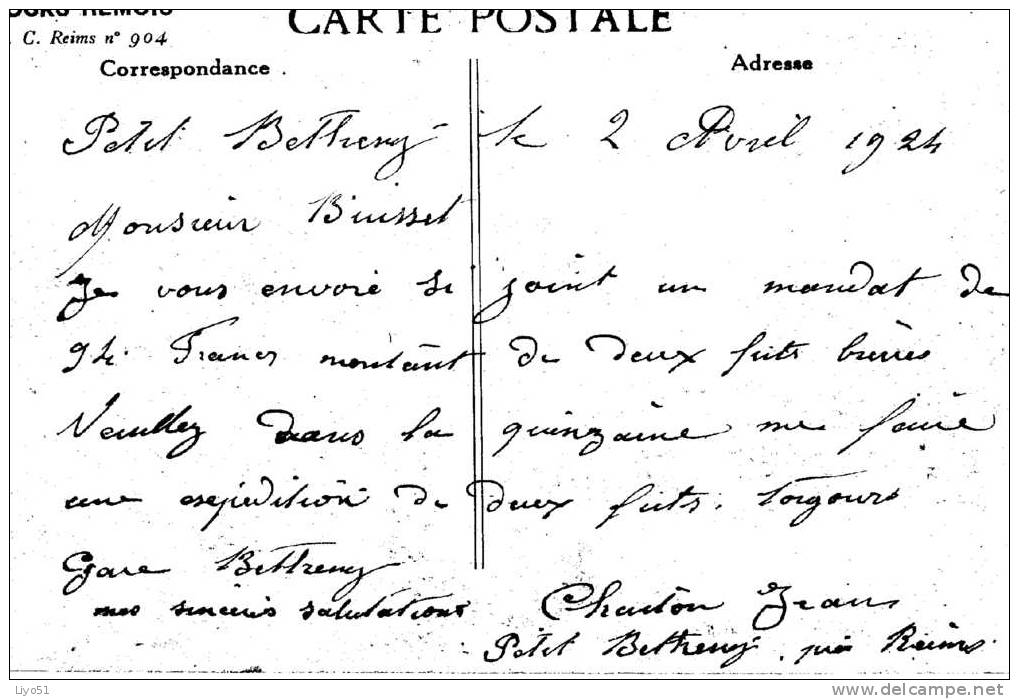 CARTE POSTALE
C. Reims nº 904
Correspondance.
Adresse
Petit Betheny le 2 Avril 1924
Monsieur Buisset
Je vous envoie si joint un mandat de
94 Francs montant de deux futs bières
Veuillez dans la quinzaine me faire
une expédition de deux futs. Toujours
Gare Betheny
mes sincères salutations
Charton Jean
Petit Betheny près Reims.
Liyo51
www.delcampe.net